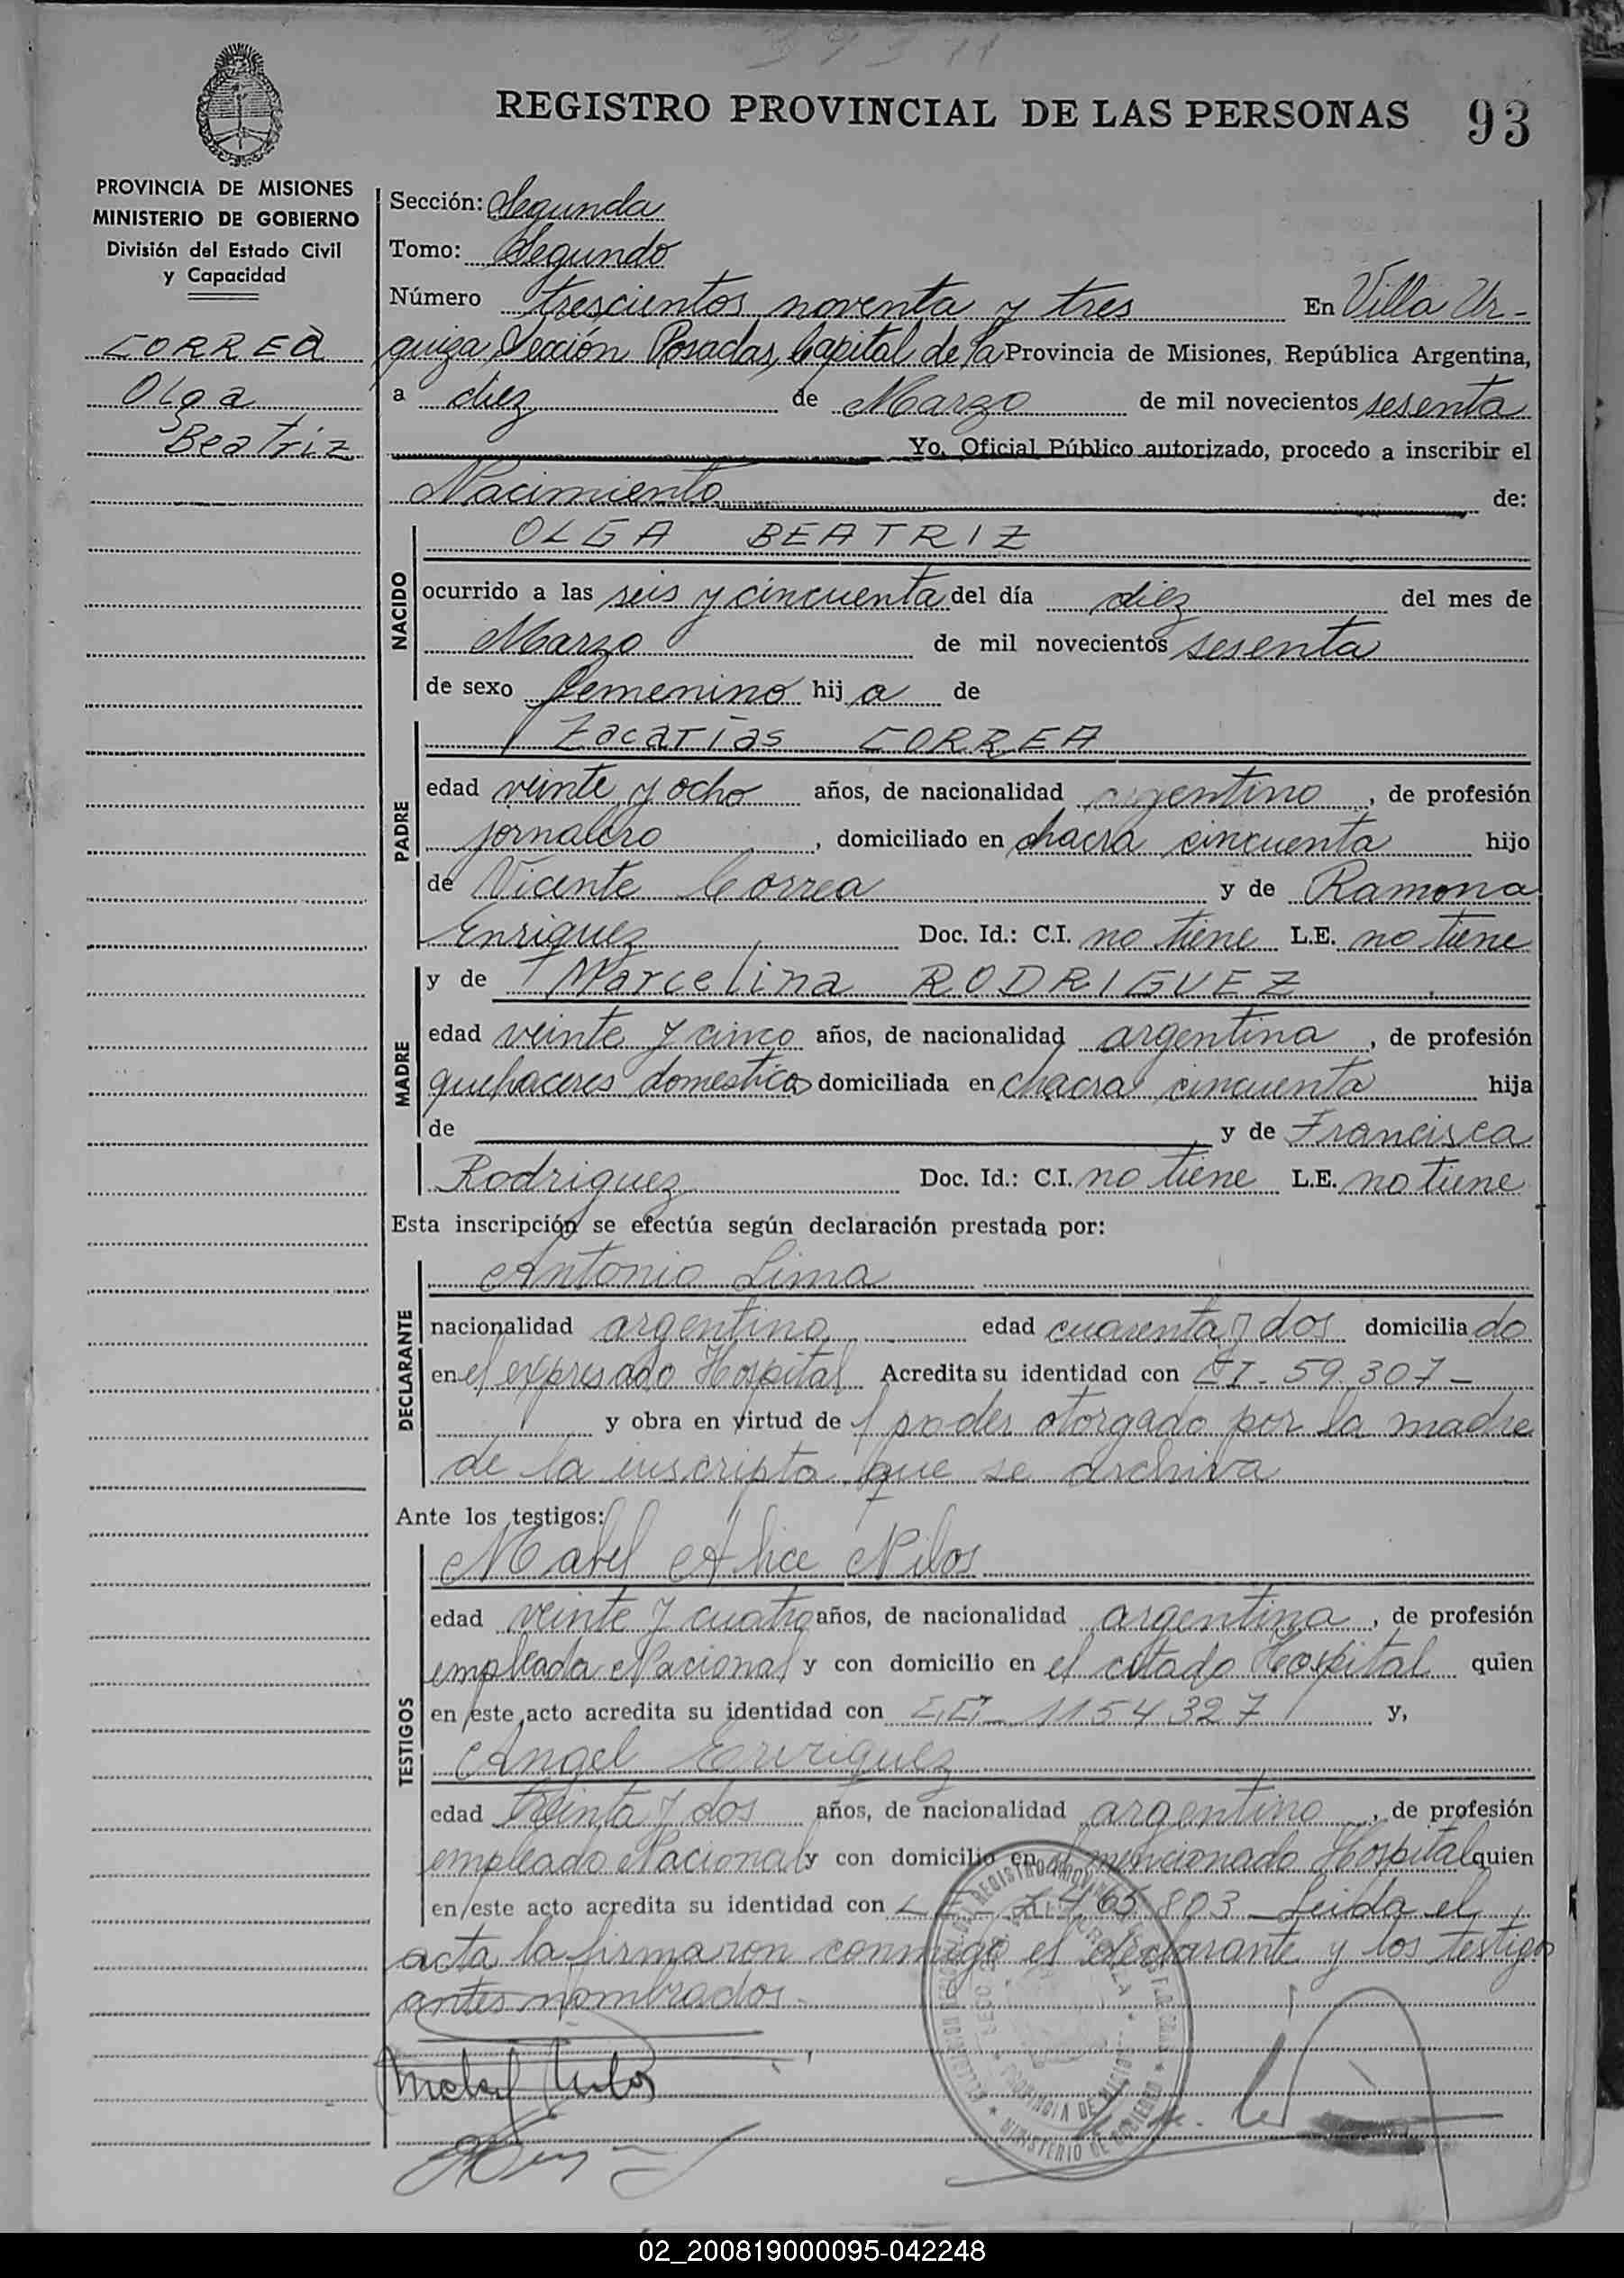 REGISTRO PROVINCIAL DE LAS PERSONAS 93
PROVINCIA DE MISIONES
MINISTERIO DE GOBIERNO
División del Estado Civil
y Capacidad
CORREA
Olga
Beatriz
Sección: Segunda
Tomo: Segundo
Número trescientos noventa y tres En Villa Ur-
quiza, Sección Posadas, Capital de la Provincia de Misiones, República Argentina,
a diez de Marzo de mil novecientos sesenta
Yo, Oficial Público autorizado, procedo a inscribir el
Nacimiento de:
NACIDO
OLGA BEATRIZ
ocurrido a las seis y cincuenta del día diez del mes de
Marzo de mil novecientos sesenta
de sexo femenino hija de
PADRE
Zacarías CORREA
edad veinte y ocho años, de nacionalidad argentino, de profesión
jornalero, domiciliado en chacra cincuenta hijo
de Vicente Correa y de Ramona
Enriquez Doc. Id.: C.I. no tiene L.E. no tiene
MADRE
y de Marcelina RODRIGUEZ
edad veinte y cinco años, de nacionalidad argentina, de profesión
quehaceres domesticos domiciliada en chacra cincuenta hija
de y de Francisca
Rodriguez Doc. Id.: C.I. no tiene L.E. no tiene
Esta inscripción se efectúa según declaración prestada por:
DECLARANTE
Antonio Lima
nacionalidad argentino edad cuarenta y dos domiciliado
en el expresado Hospital Acredita su identidad con CI. 59.307 -
y obra en virtud de poder otorgado por la madre
de la inscripta que se archiva
Ante los testigos:
TESTIGOS
Mabel Alice Nilos
edad veinte y cuatro años, de nacionalidad argentina, de profesión
empleada Nacional y con domicilio en el citado Hospital quien
en este acto acredita su identidad con 1154327 y,
Angel Enriquez
edad treinta y dos años, de nacionalidad argentino, de profesión
empleado Nacional y con domicilio en el mencionado Hospital quien
en este acto acredita su identidad con 803 Leida el
acta la firmaron conmigo el declarante y los testigos
antes nombrados.
PROVINCIA DE
MINISTERIO DE GOBIERNO
02_200819000095-042248